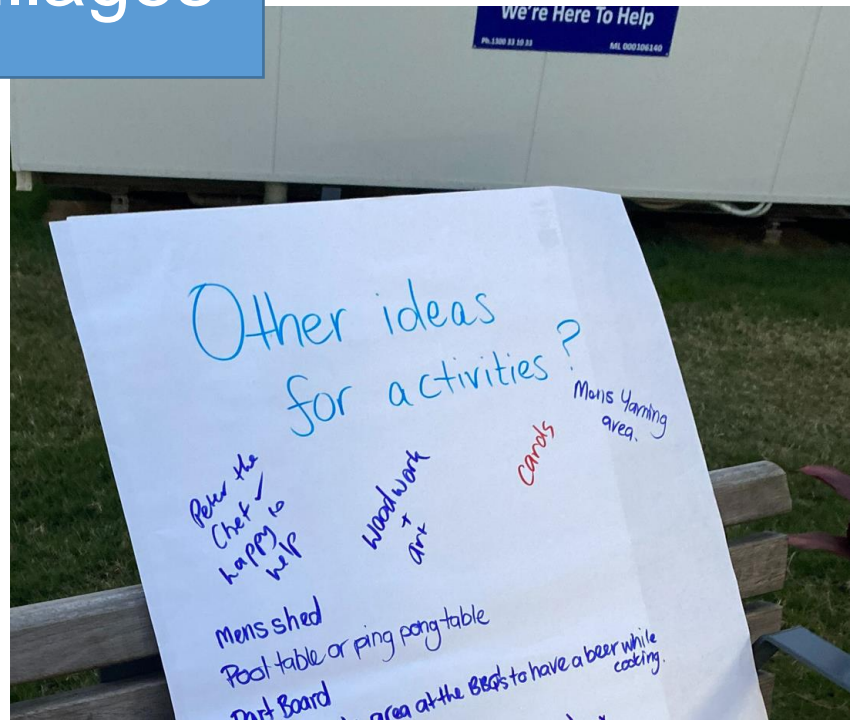 We're Here To Help
Ph.1300 33 10 33
ML 000106140
Other ideas
for activities?
Mens Yarning
area.
cards
Peter the
Chef ✓
happy to
help
Woodwork
+
art
Mens shed
Pool table or ping pong table
Dart Board
area at the BBQ's to have a beer while
cooking.